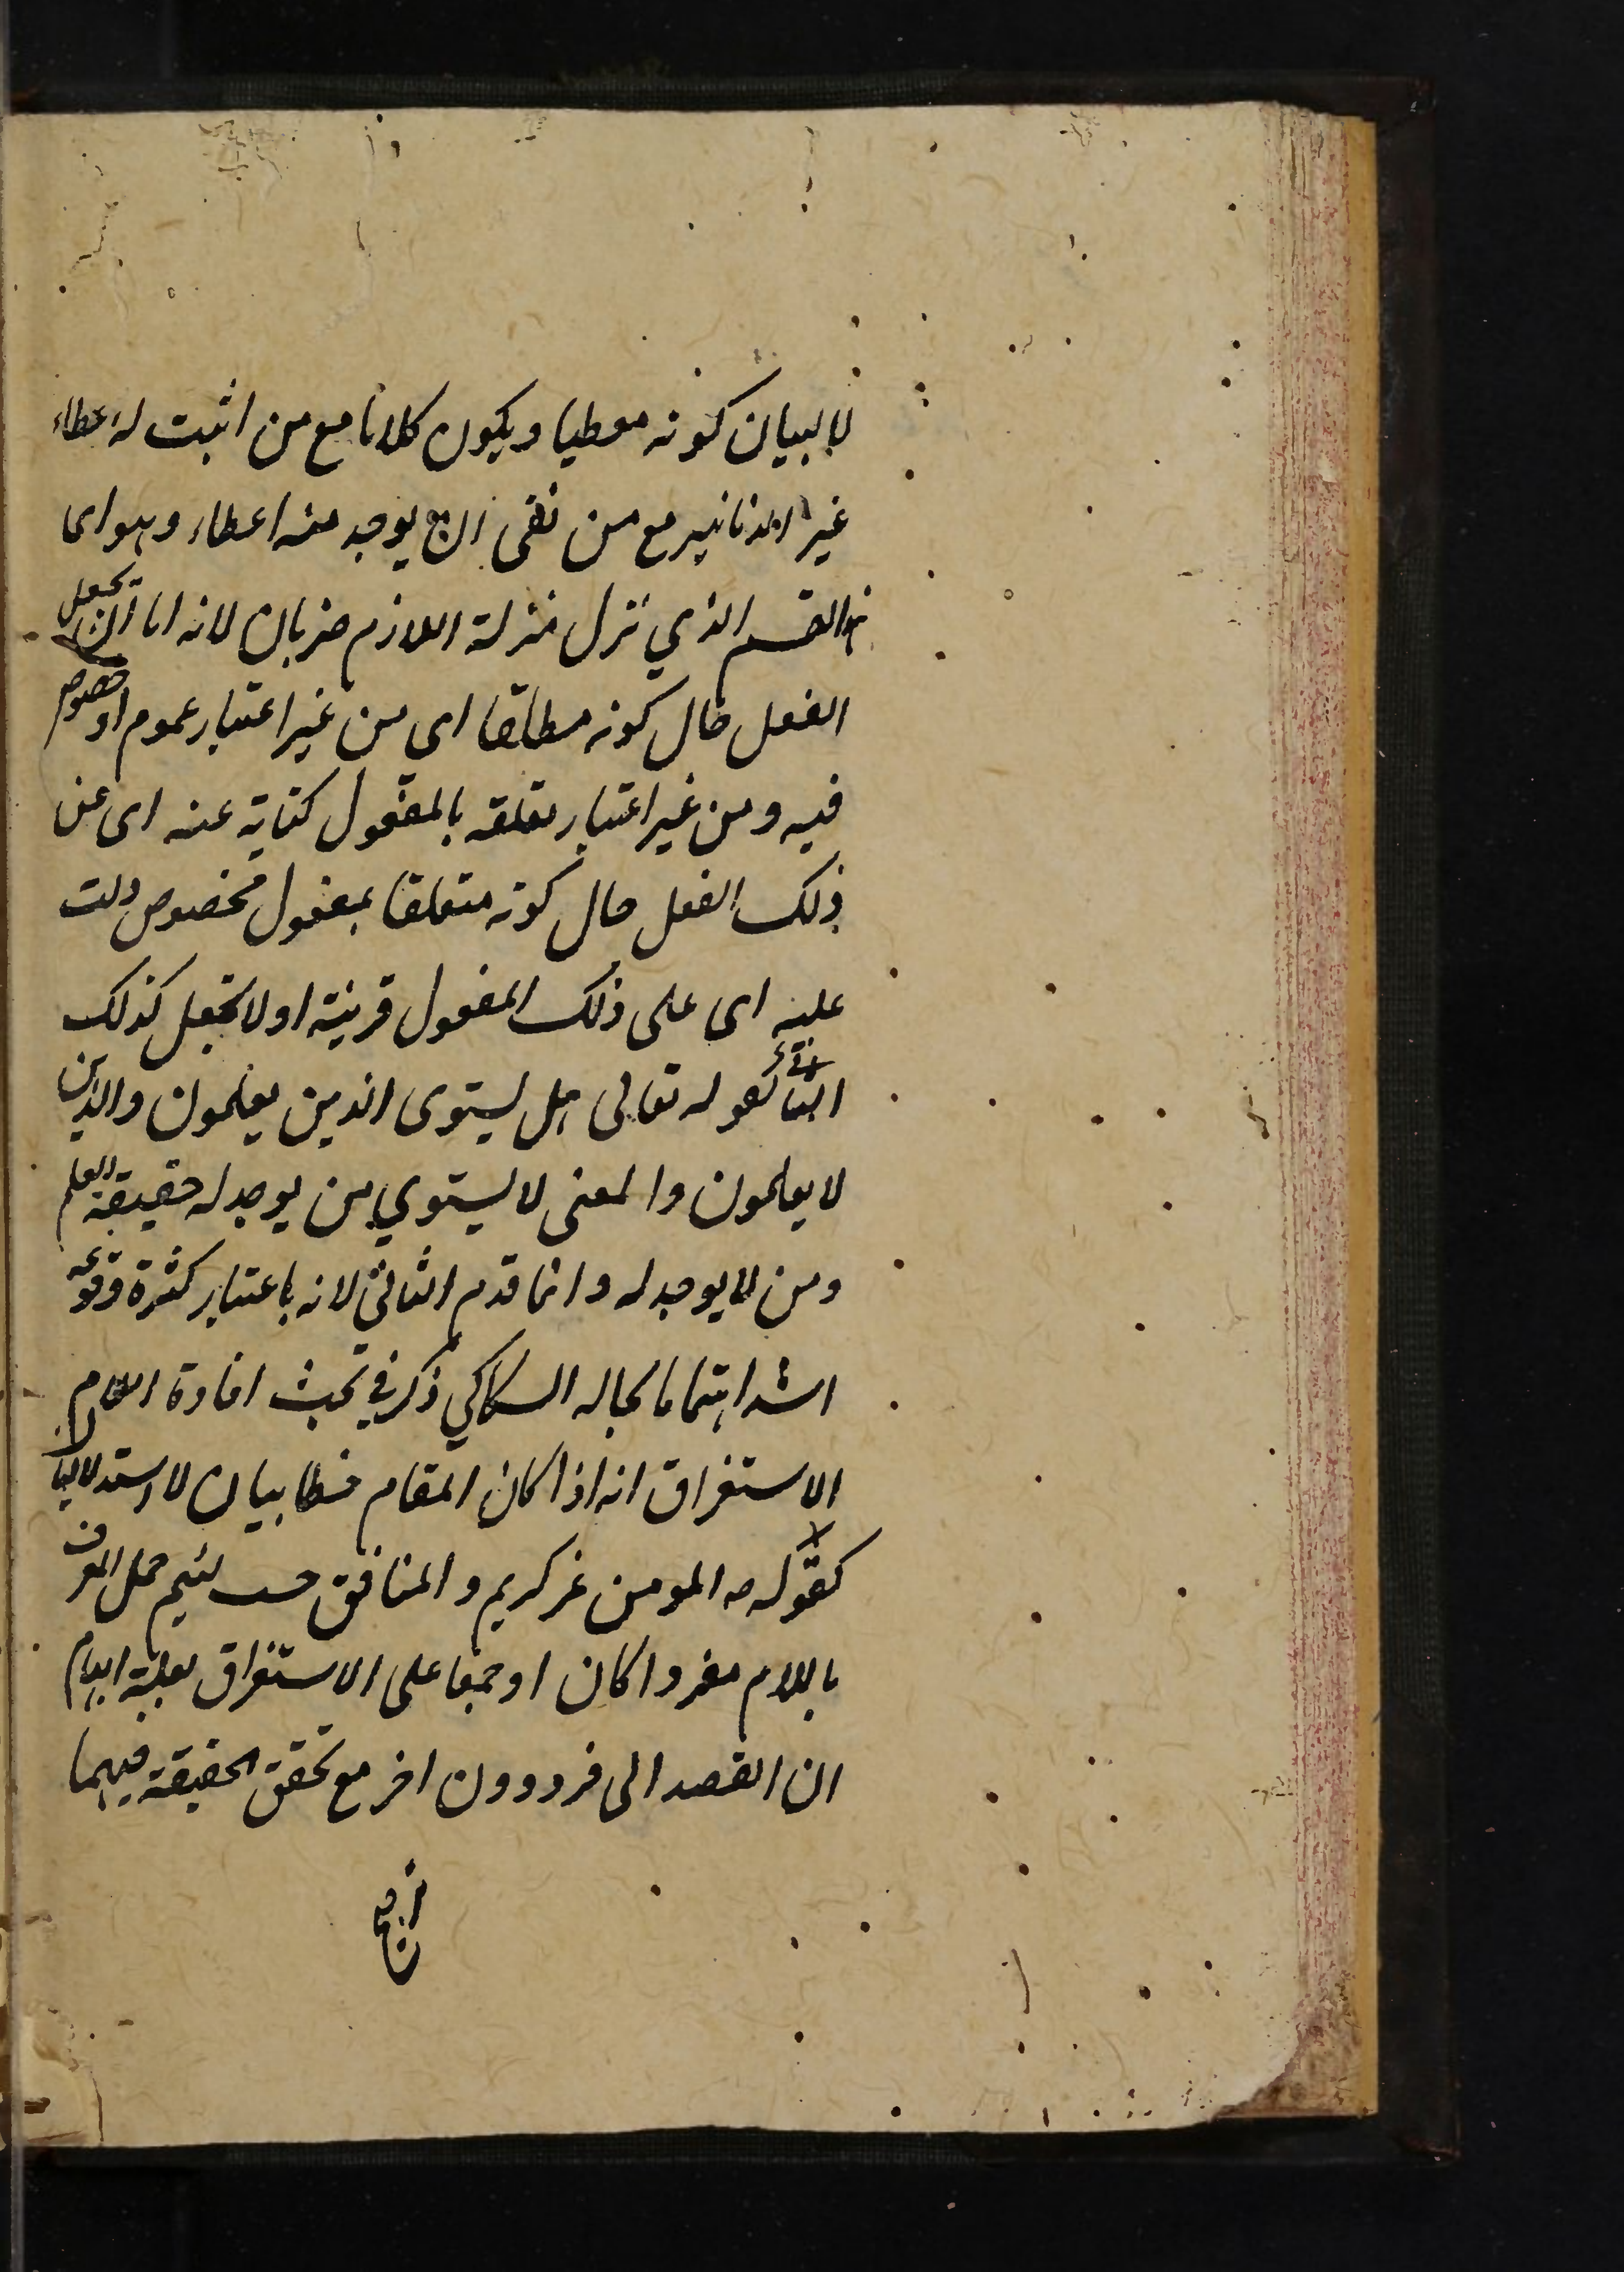 لا لبيان كونه معطيا ويكون كلاما مع من اثبت له اعطاء
غير الدنانير مع من نفى ان يوجد منه اعطاء وهو اى
هذا القسم الذي نزل منزلة اللازم ضربان لانه اما ان يجعل
الفعل حال كونه مطلقا اى من غير اعتبار عموم او خصوص
فيه ومن غير اعتبار تعلقه بالمفعول كناية عنه اى عن
ذلك الفعل حال كونه متعلقا بمفعول مخصوص دلت
عليه اى على ذلك المفعول قرينة او لا يجعل كذلك
الثانى كقوله تعالى هل يستوى الذين يعلمون والذين
لا يعلمون والمعنى لا يستوي من يوجد له حقيقة العلم
ومن لا يوجد له وانما قدم الثانى لانه باعتبار كثرة وقوعه
اشد اهتماما بحاله السكاكي ذكر في بحث افادة اللام
الاستغراق انه اذا كان المقام خطابيا لا استدلاليا
كقوله ص المومن غر كريم والمنافق خب لئيم حمل المعرف
باللام مفردا كان او جمعا على الاستغراق بعلة ايهام
ان القصد الى فرد دون اخر مع تحقق الحقيقة فيهما